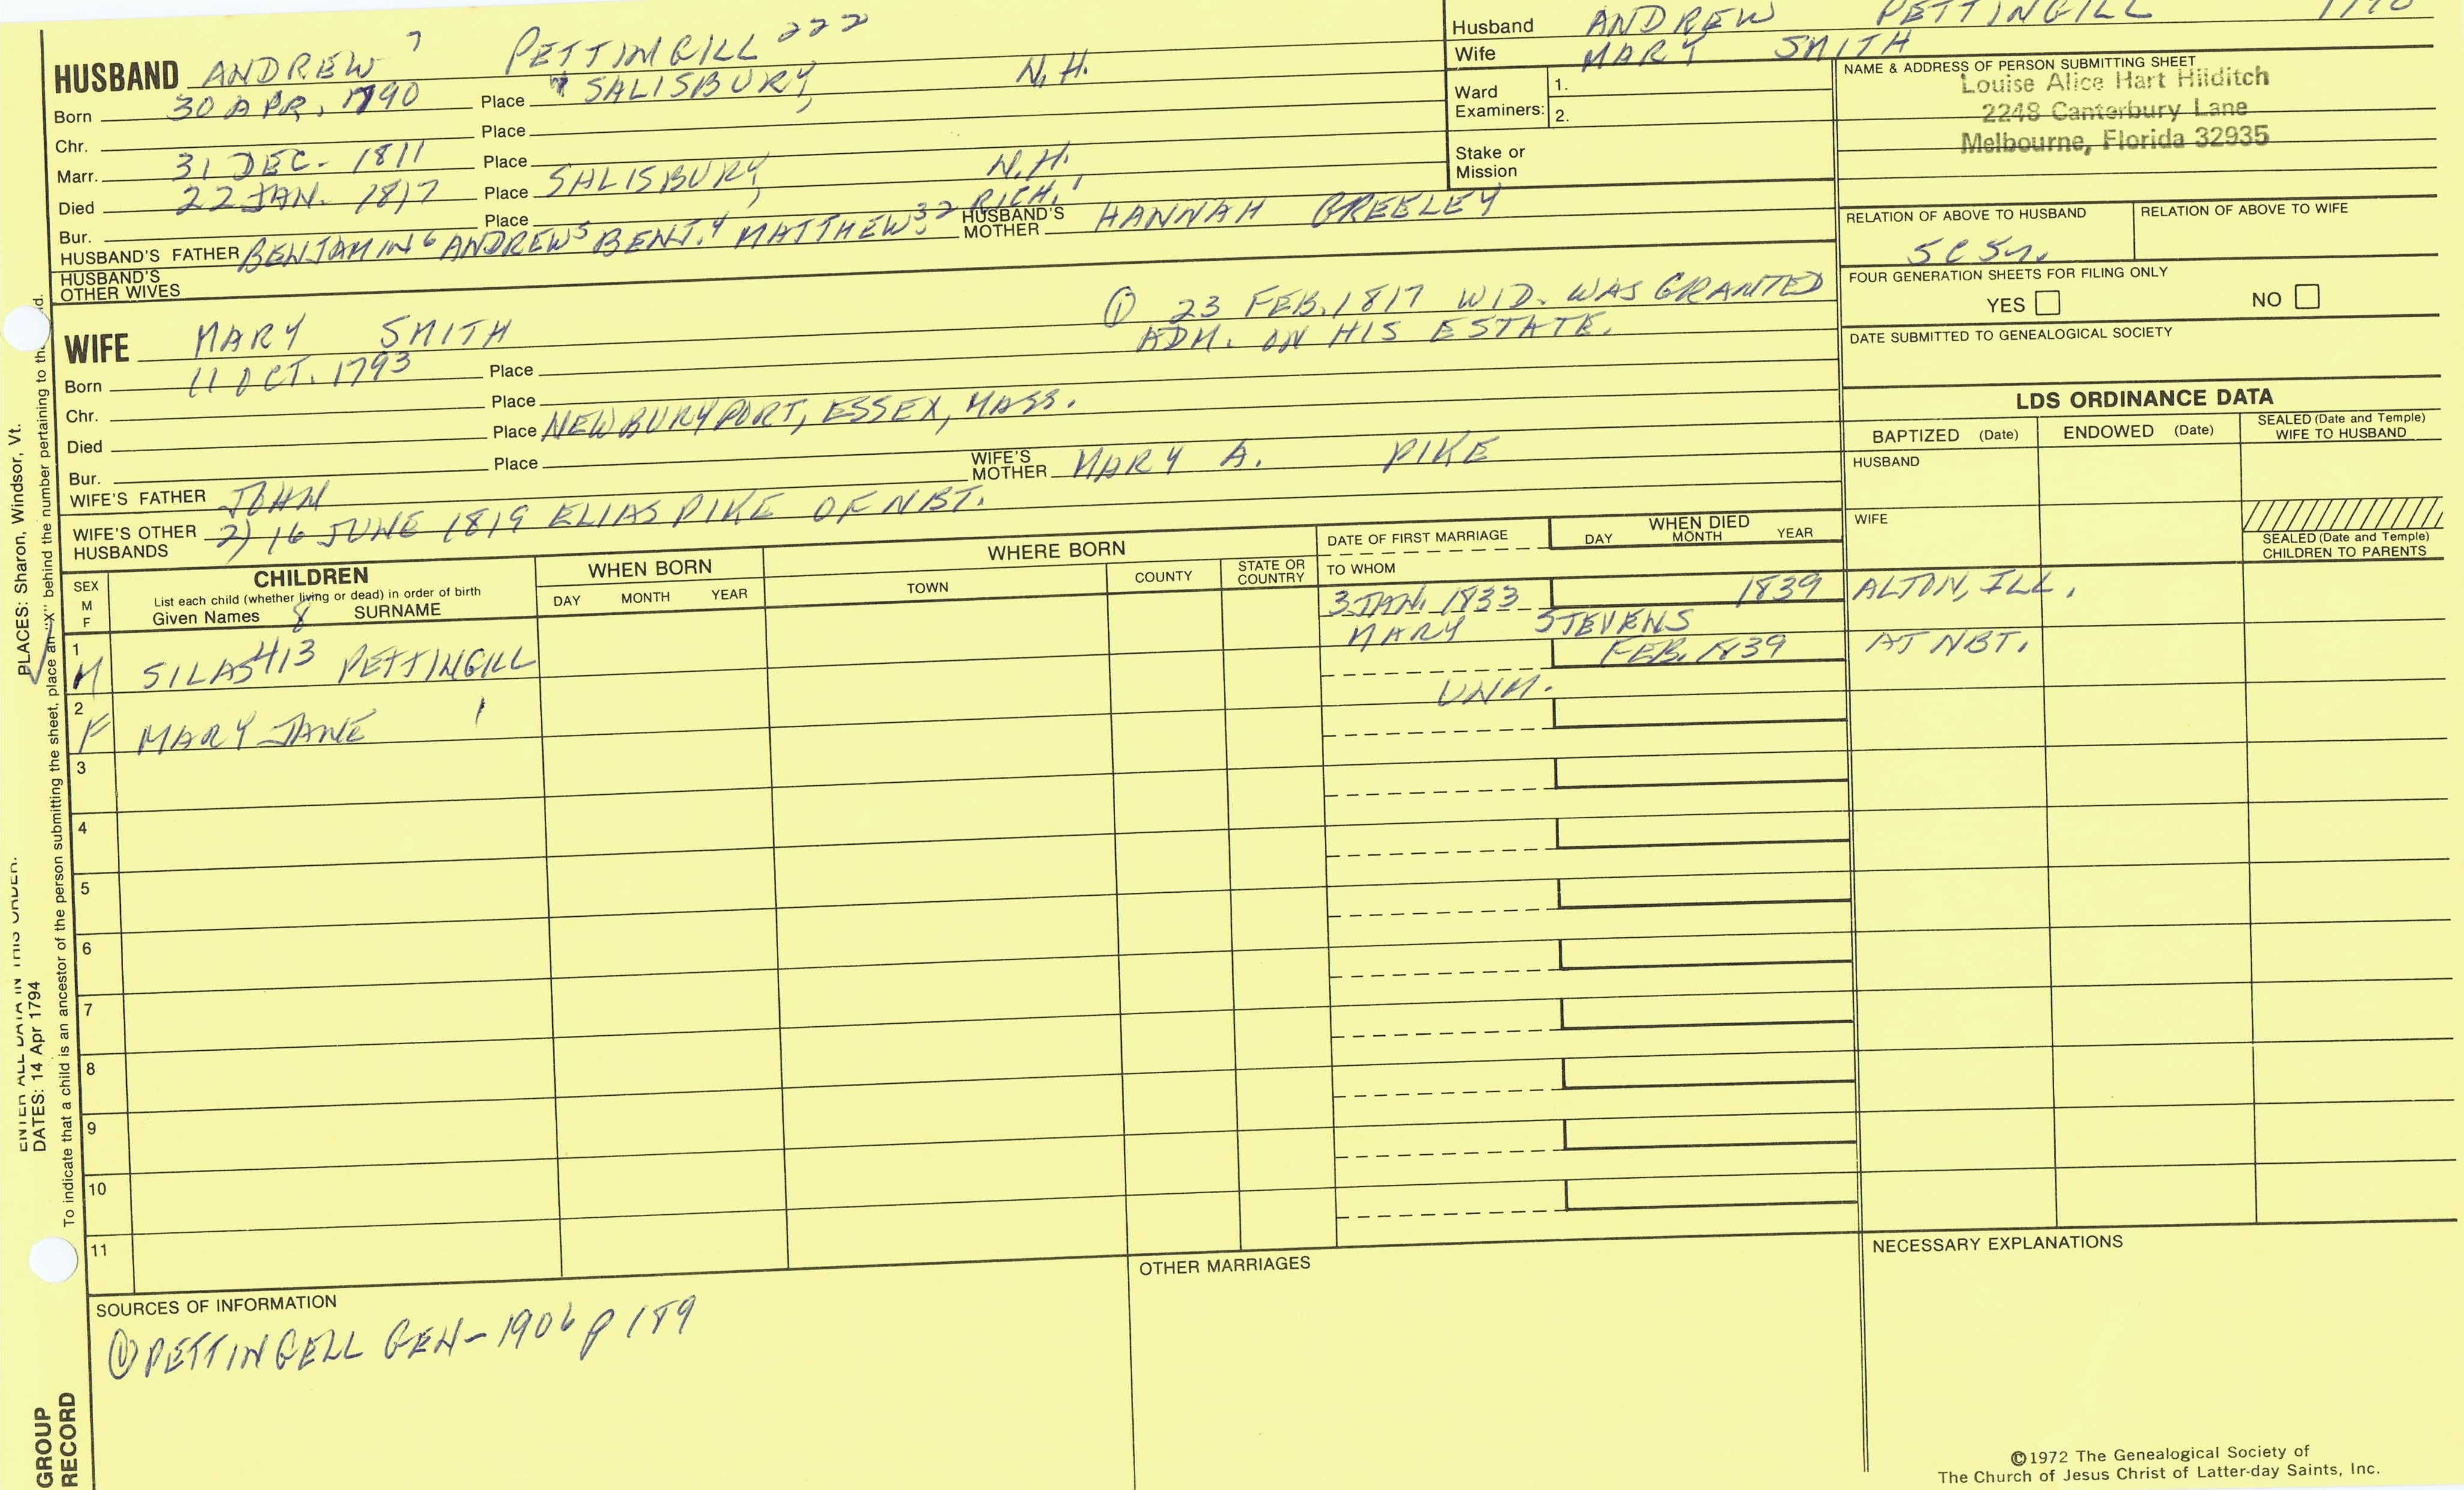 Husband ANDREW PETTINGILL 1790
Wife MARY SMITH
HUSBAND ANDREW 7 PETTINGILL 222
Born 30 APR. 1790 Place SALISBURY, N.H.
Chr. Place
Marr. 31 DEC. 1811 Place
Died 22 JAN. 1817 Place SALISBURY, N.H.
Bur. Place
HUSBAND'S FATHER BENJAMIN 6 ANDREW 5 BENJ. 4 MATTHEW 3 2 RICH. 1 HUSBAND'S MOTHER HANNAH GREELEY
HUSBAND'S OTHER WIVES
Ward Examiners: 1.
2.
Stake or Mission
NAME & ADDRESS OF PERSON SUBMITTING SHEET
Louise Alice Hart Hilditch
2248 Canterbury Lane
Melbourne, Florida 32935
RELATION OF ABOVE TO HUSBAND RELATION OF ABOVE TO WIFE
5C5r.
FOUR GENERATION SHEETS FOR FILING ONLY
YES NO
DATE SUBMITTED TO GENEALOGICAL SOCIETY
① 23 FEB. 1817 WID. WAS GRANTED
ADM. ON HIS ESTATE.
WIFE MARY SMITH
Born 11 OCT. 1793 Place
Chr. Place
Died Place NEWBURYPORT, ESSEX, MASS.
Bur. Place
WIFE'S FATHER JOHN WIFE'S MOTHER MARY A. PIKE
WIFE'S OTHER HUSBANDS 2) 16 JUNE 1819 ELIAS PIKE OF NBT.
LDS ORDINANCE DATA
BAPTIZED (Date) ENDOWED (Date) SEALED (Date and Temple) WIFE TO HUSBAND
HUSBAND
WIFE
SEALED (Date and Temple) CHILDREN TO PARENTS
SEX M F
CHILDREN
List each child (whether living or dead) in order of birth
Given Names 8 SURNAME
WHEN BORN
DAY MONTH YEAR
WHERE BORN
TOWN COUNTY STATE OR COUNTRY
DATE OF FIRST MARRIAGE
TO WHOM
WHEN DIED
DAY MONTH YEAR
1 M SILAS 413 PETTINGILL 3 JAN. 1833 MARY STEVENS 1839 ALTON, ILL.
2 F MARY JANE UNM. FEB. 1839 AT NBT.
3
4
5
6
7
8
9
10
11
SOURCES OF INFORMATION
① PETTINGELL GEN- 1906 p 189
OTHER MARRIAGES
NECESSARY EXPLANATIONS
©1972 The Genealogical Society of
The Church of Jesus Christ of Latter-day Saints, Inc.
ENTER ALL DATA IN THIS ORDER:
DATES: 14 Apr 1794
PLACES: Sharon, Windsor, Vt.
To indicate that a child is an ancestor of the person submitting the sheet, place an "X" behind the number pertaining to
GROUP
RECORD